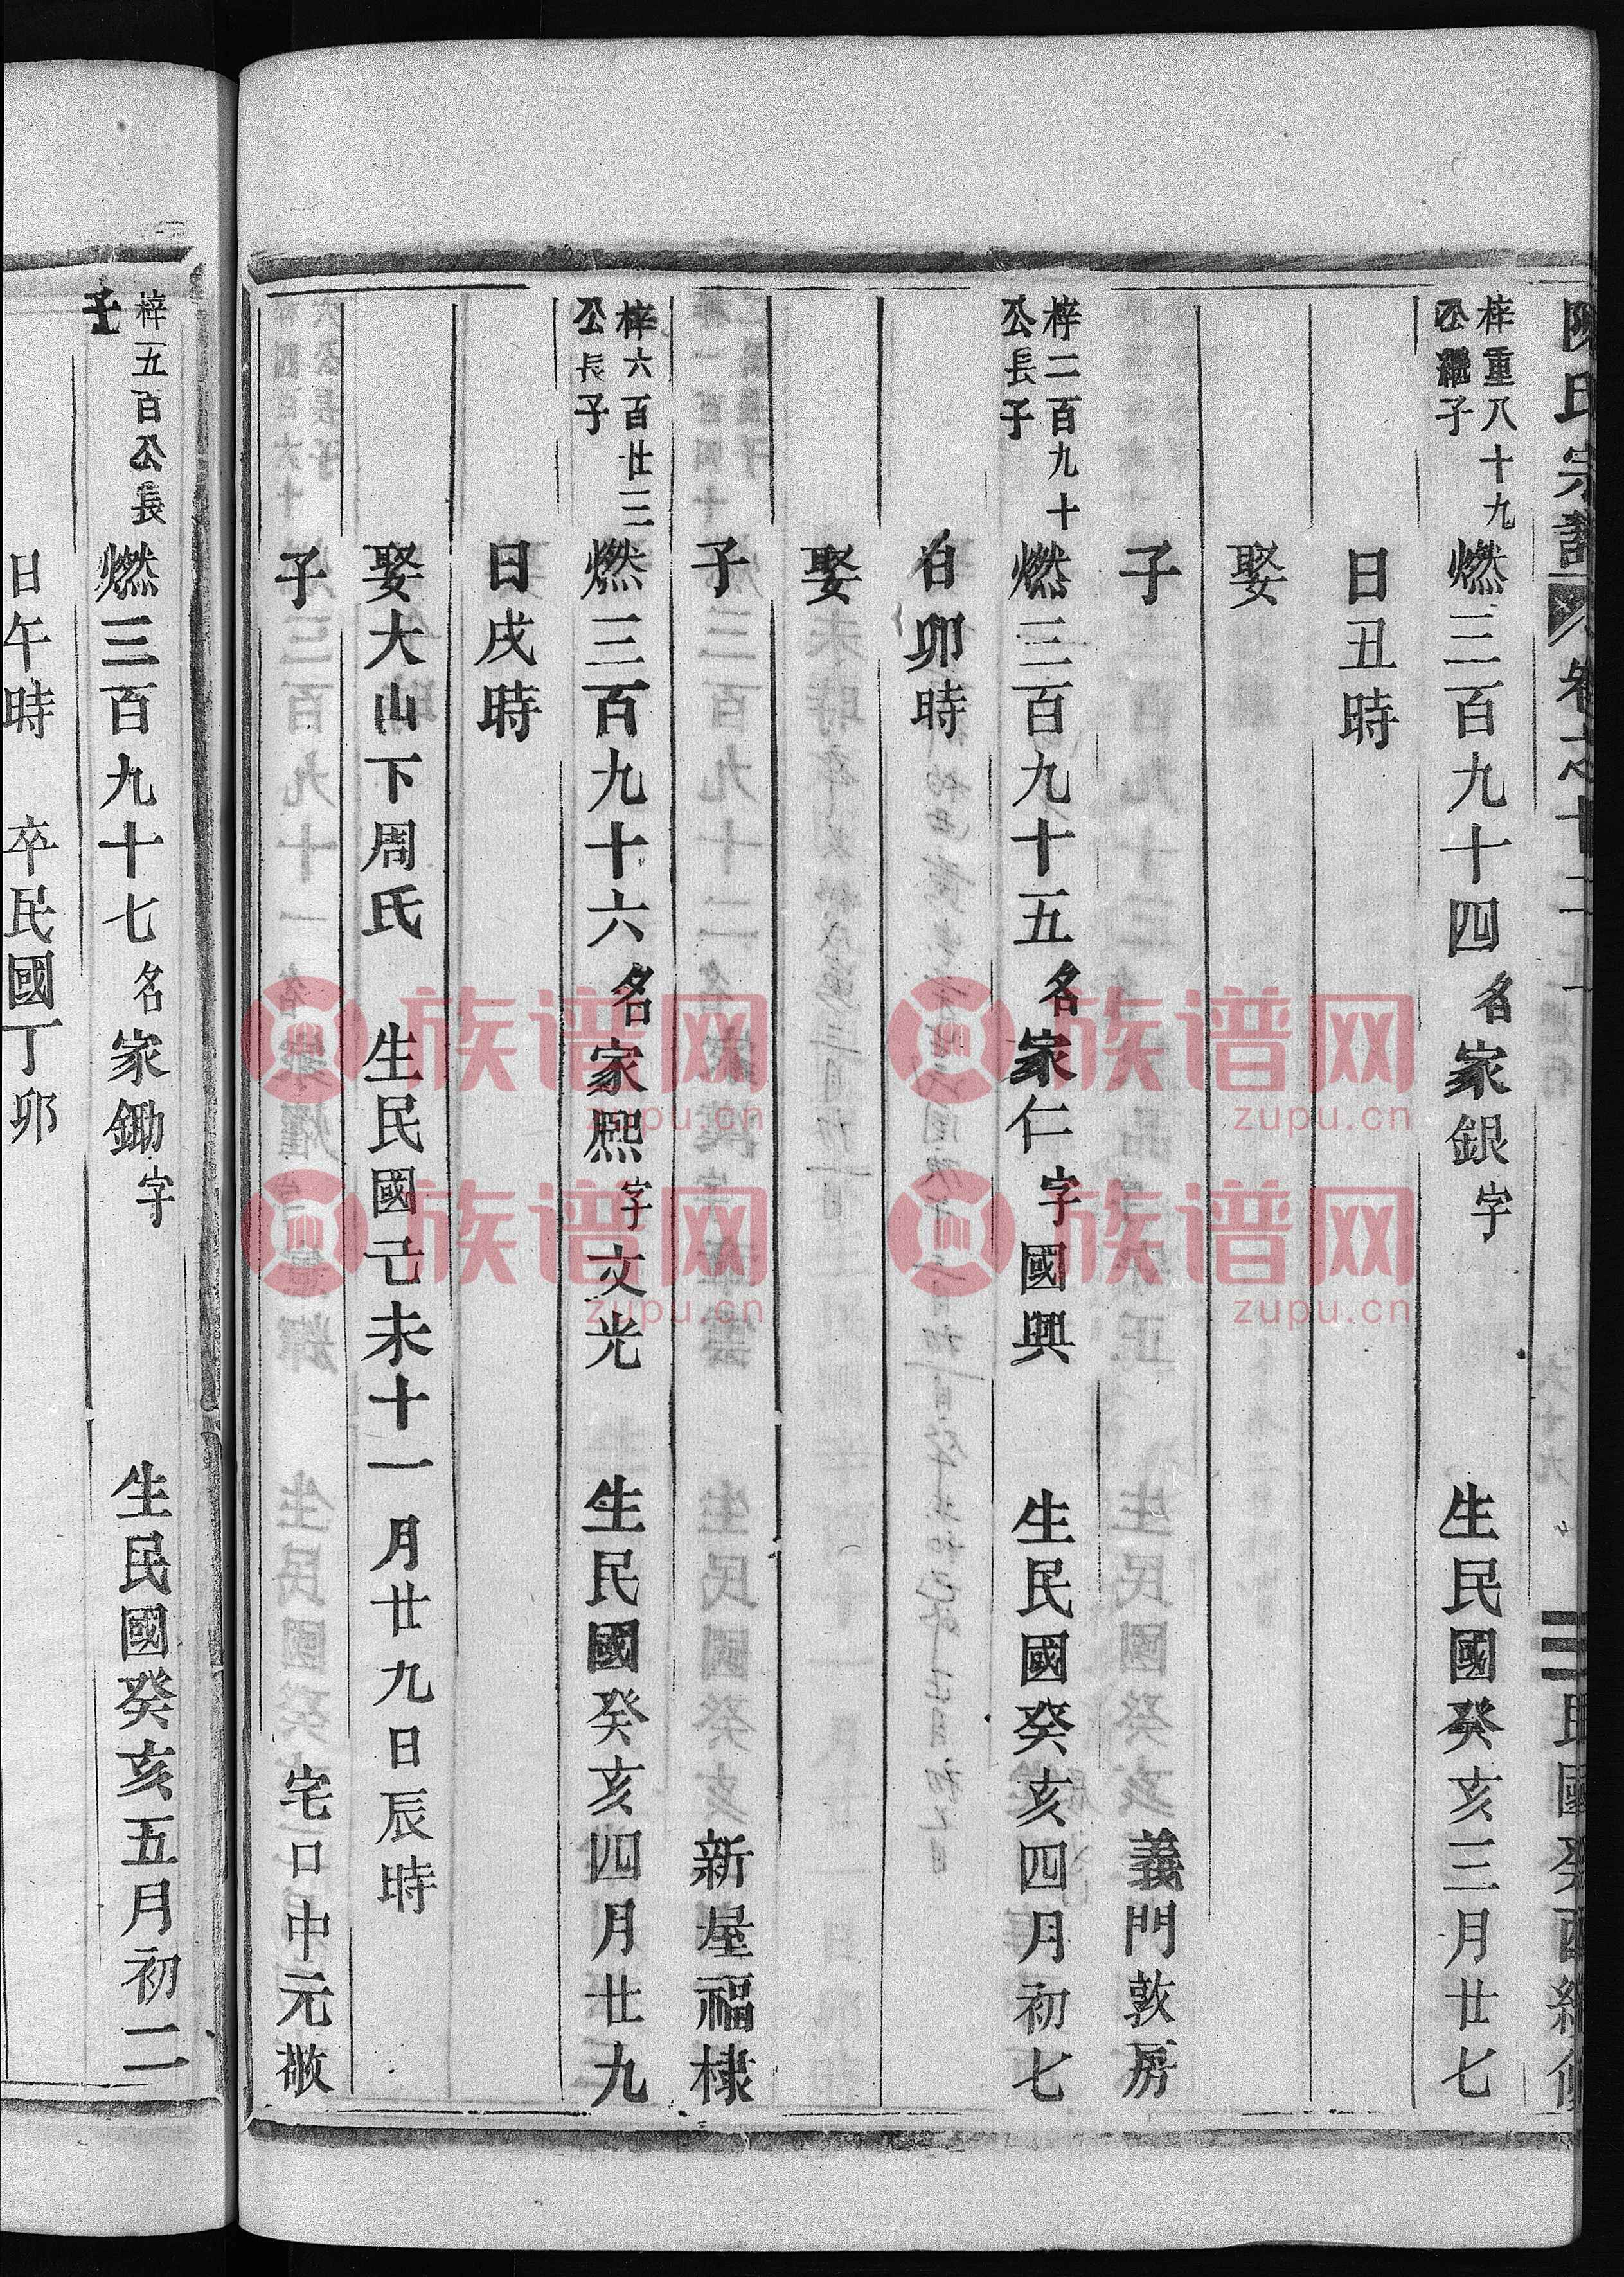 陳氏宗譜 卷之十二 民國癸酉續修
梓重八十九
公繼子
燃三百九十四名家銀字 生民國癸亥三月廿七
日丑時
娶
子 義門敦房
梓二百九十
公長子
燃三百九十五名家仁字國興 生民國癸亥四月初七
日卯時
娶
子 新屋福棣
梓六百廿三
公長子
燃三百九十六名家熙字文光 生民國癸亥四月廿九
日戌時
娶大山下周氏 生民國己未十一月廿九日辰時
子 宅口中元敬
梓五百公長
子
燃三百九十七名家鋤字 生民國癸亥五月初二
日午時 卒民國丁卯
族谱网
zupu.cn
族谱网
zupu.cn
族谱网
zupu.cn
族谱网
zupu.cn